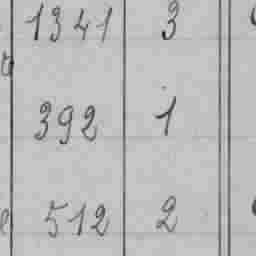 1341 3
392 1
512 2